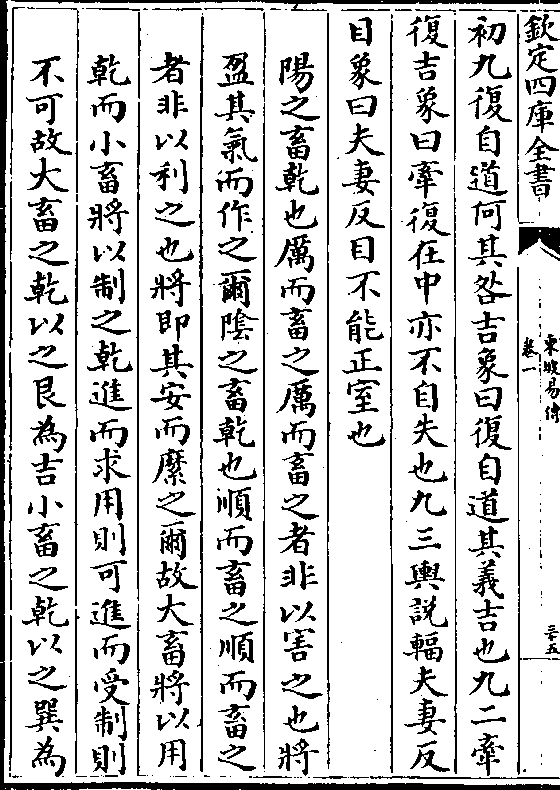 欽定四庫全書
東坡易傳
卷一
三十五
初九復自道何其咎吉象曰復自道其義吉也九二牽
復吉象曰牽復在中亦不自失也九三輿説輻夫妻反
目象曰夫妻反目不能正室也
陽之畜乾也厲而畜之厲而畜之者非以害之也將
盈其氣而作之爾陰之畜乾也順而畜之順而畜之
者非以利之也將即其安而糜之爾故大畜將以用
乾而小畜將以制之乾進而求用則可進而受制則
不可故大畜之乾以之艮為吉小畜之乾以之巽為